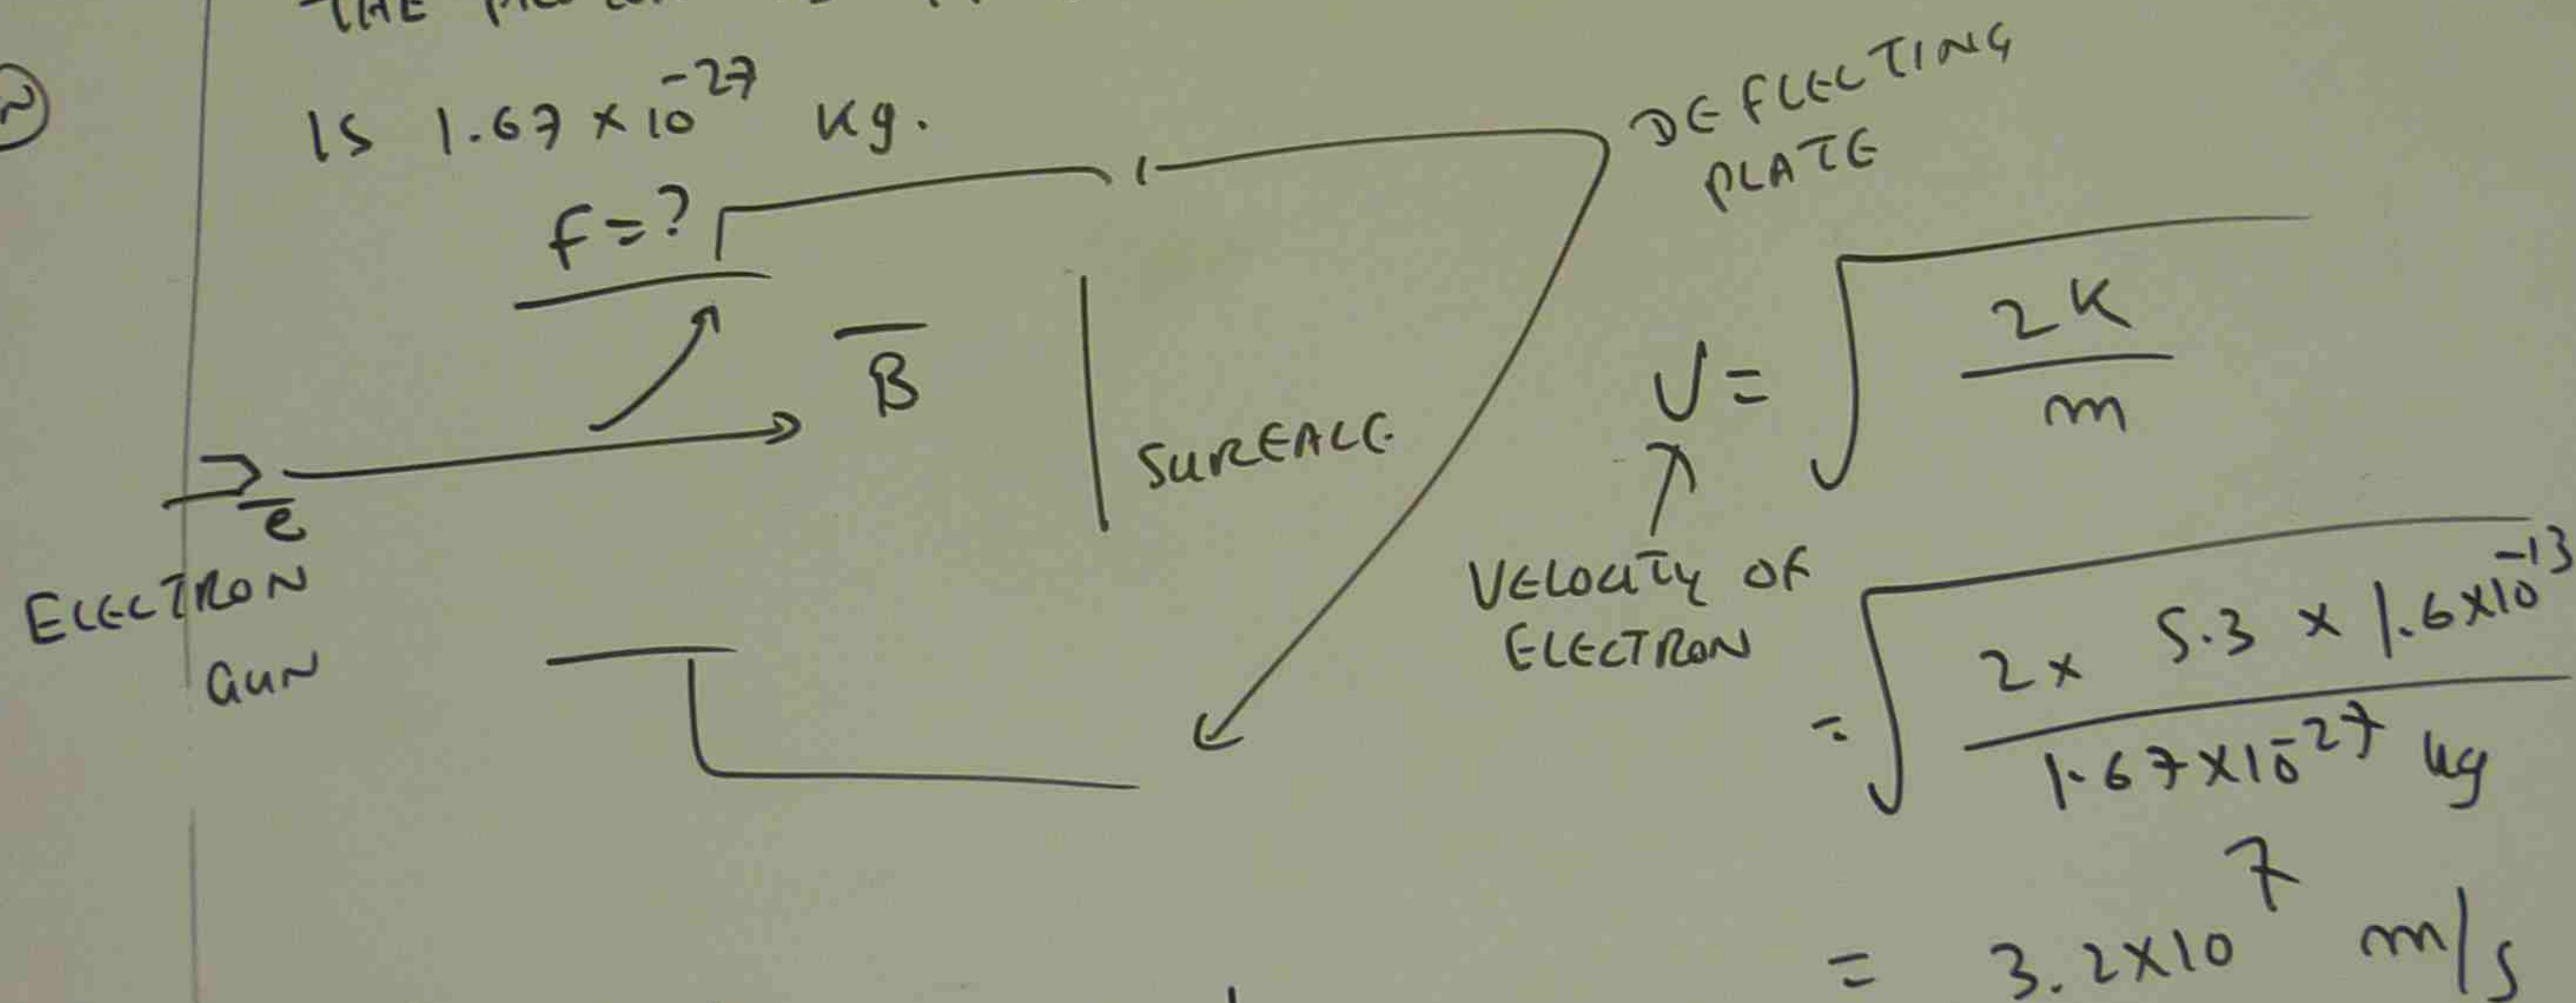 THE
IS 1.67 × 10^-27 kg.
F = ?
DEFLECTING
PLATE
B
SUREALE
e
ELECTRON
GUN
V = √(2K/m)
VELOCITY OF
ELECTRON
= √(2 × 5.3 × 1.6×10^-13 / 1.67×10^-27 kg)
= 3.2×10^7 m/s